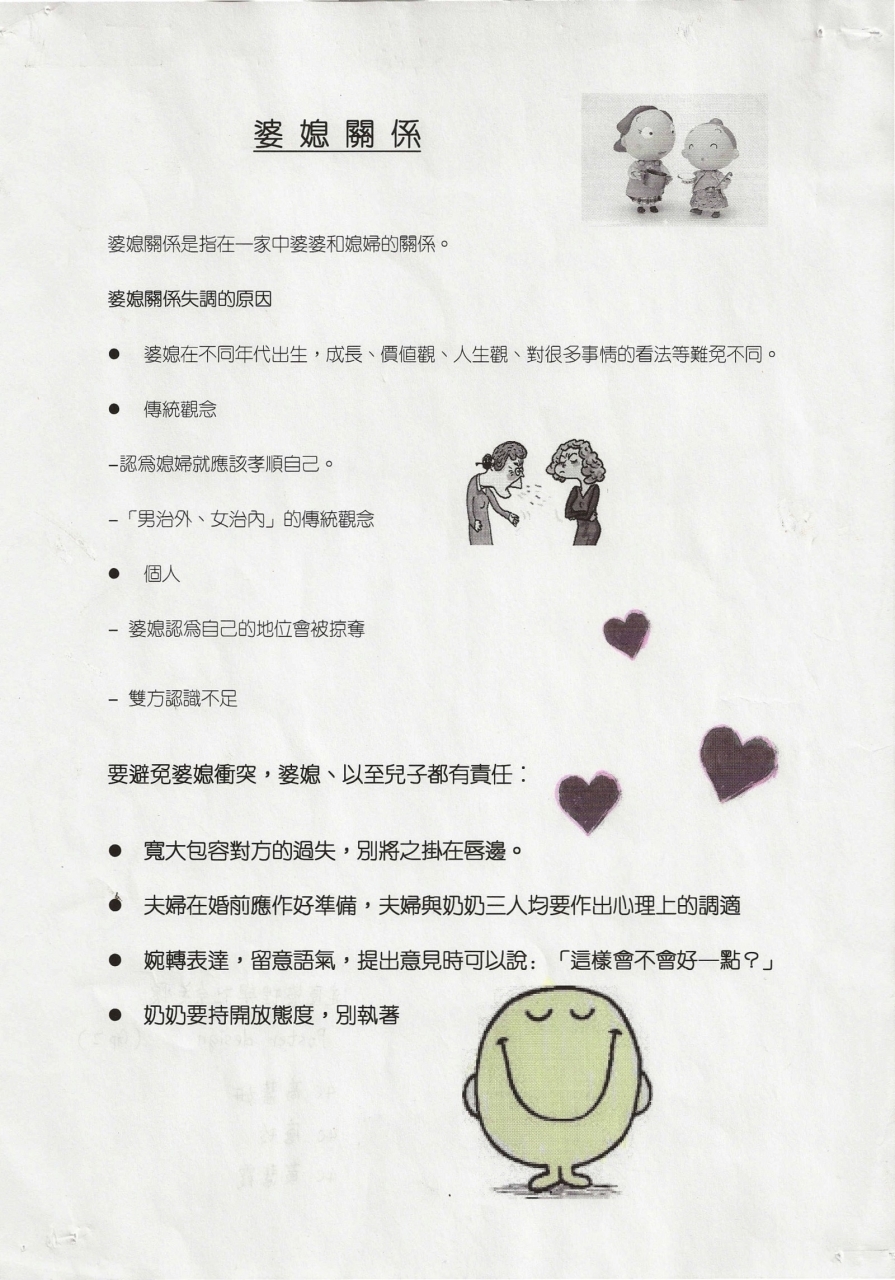 婆媳關係
婆媳關係是指在一家中婆婆和媳婦的關係。
婆媳關係失調的原因
● 婆媳在不同年代出生，成長、價值觀、人生觀、對很多事情的看法等難免不同。
● 傳統觀念
–認為媳婦就應該孝順自己。
–「男治外、女治內」的傳統觀念
● 個人
– 婆媳認為自己的地位會被掠奪
– 雙方認識不足
要避免婆媳衝突，婆媳、以至兒子都有責任：
● 寬大包容對方的過失，別將之掛在唇邊。
● 夫婦在婚前應作好準備，夫婦與奶奶三人均要作出心理上的調適
● 婉轉表達，留意語氣，提出意見時可以說：「這樣會不會好一點？」
● 奶奶要持開放態度，別執著
Poster design